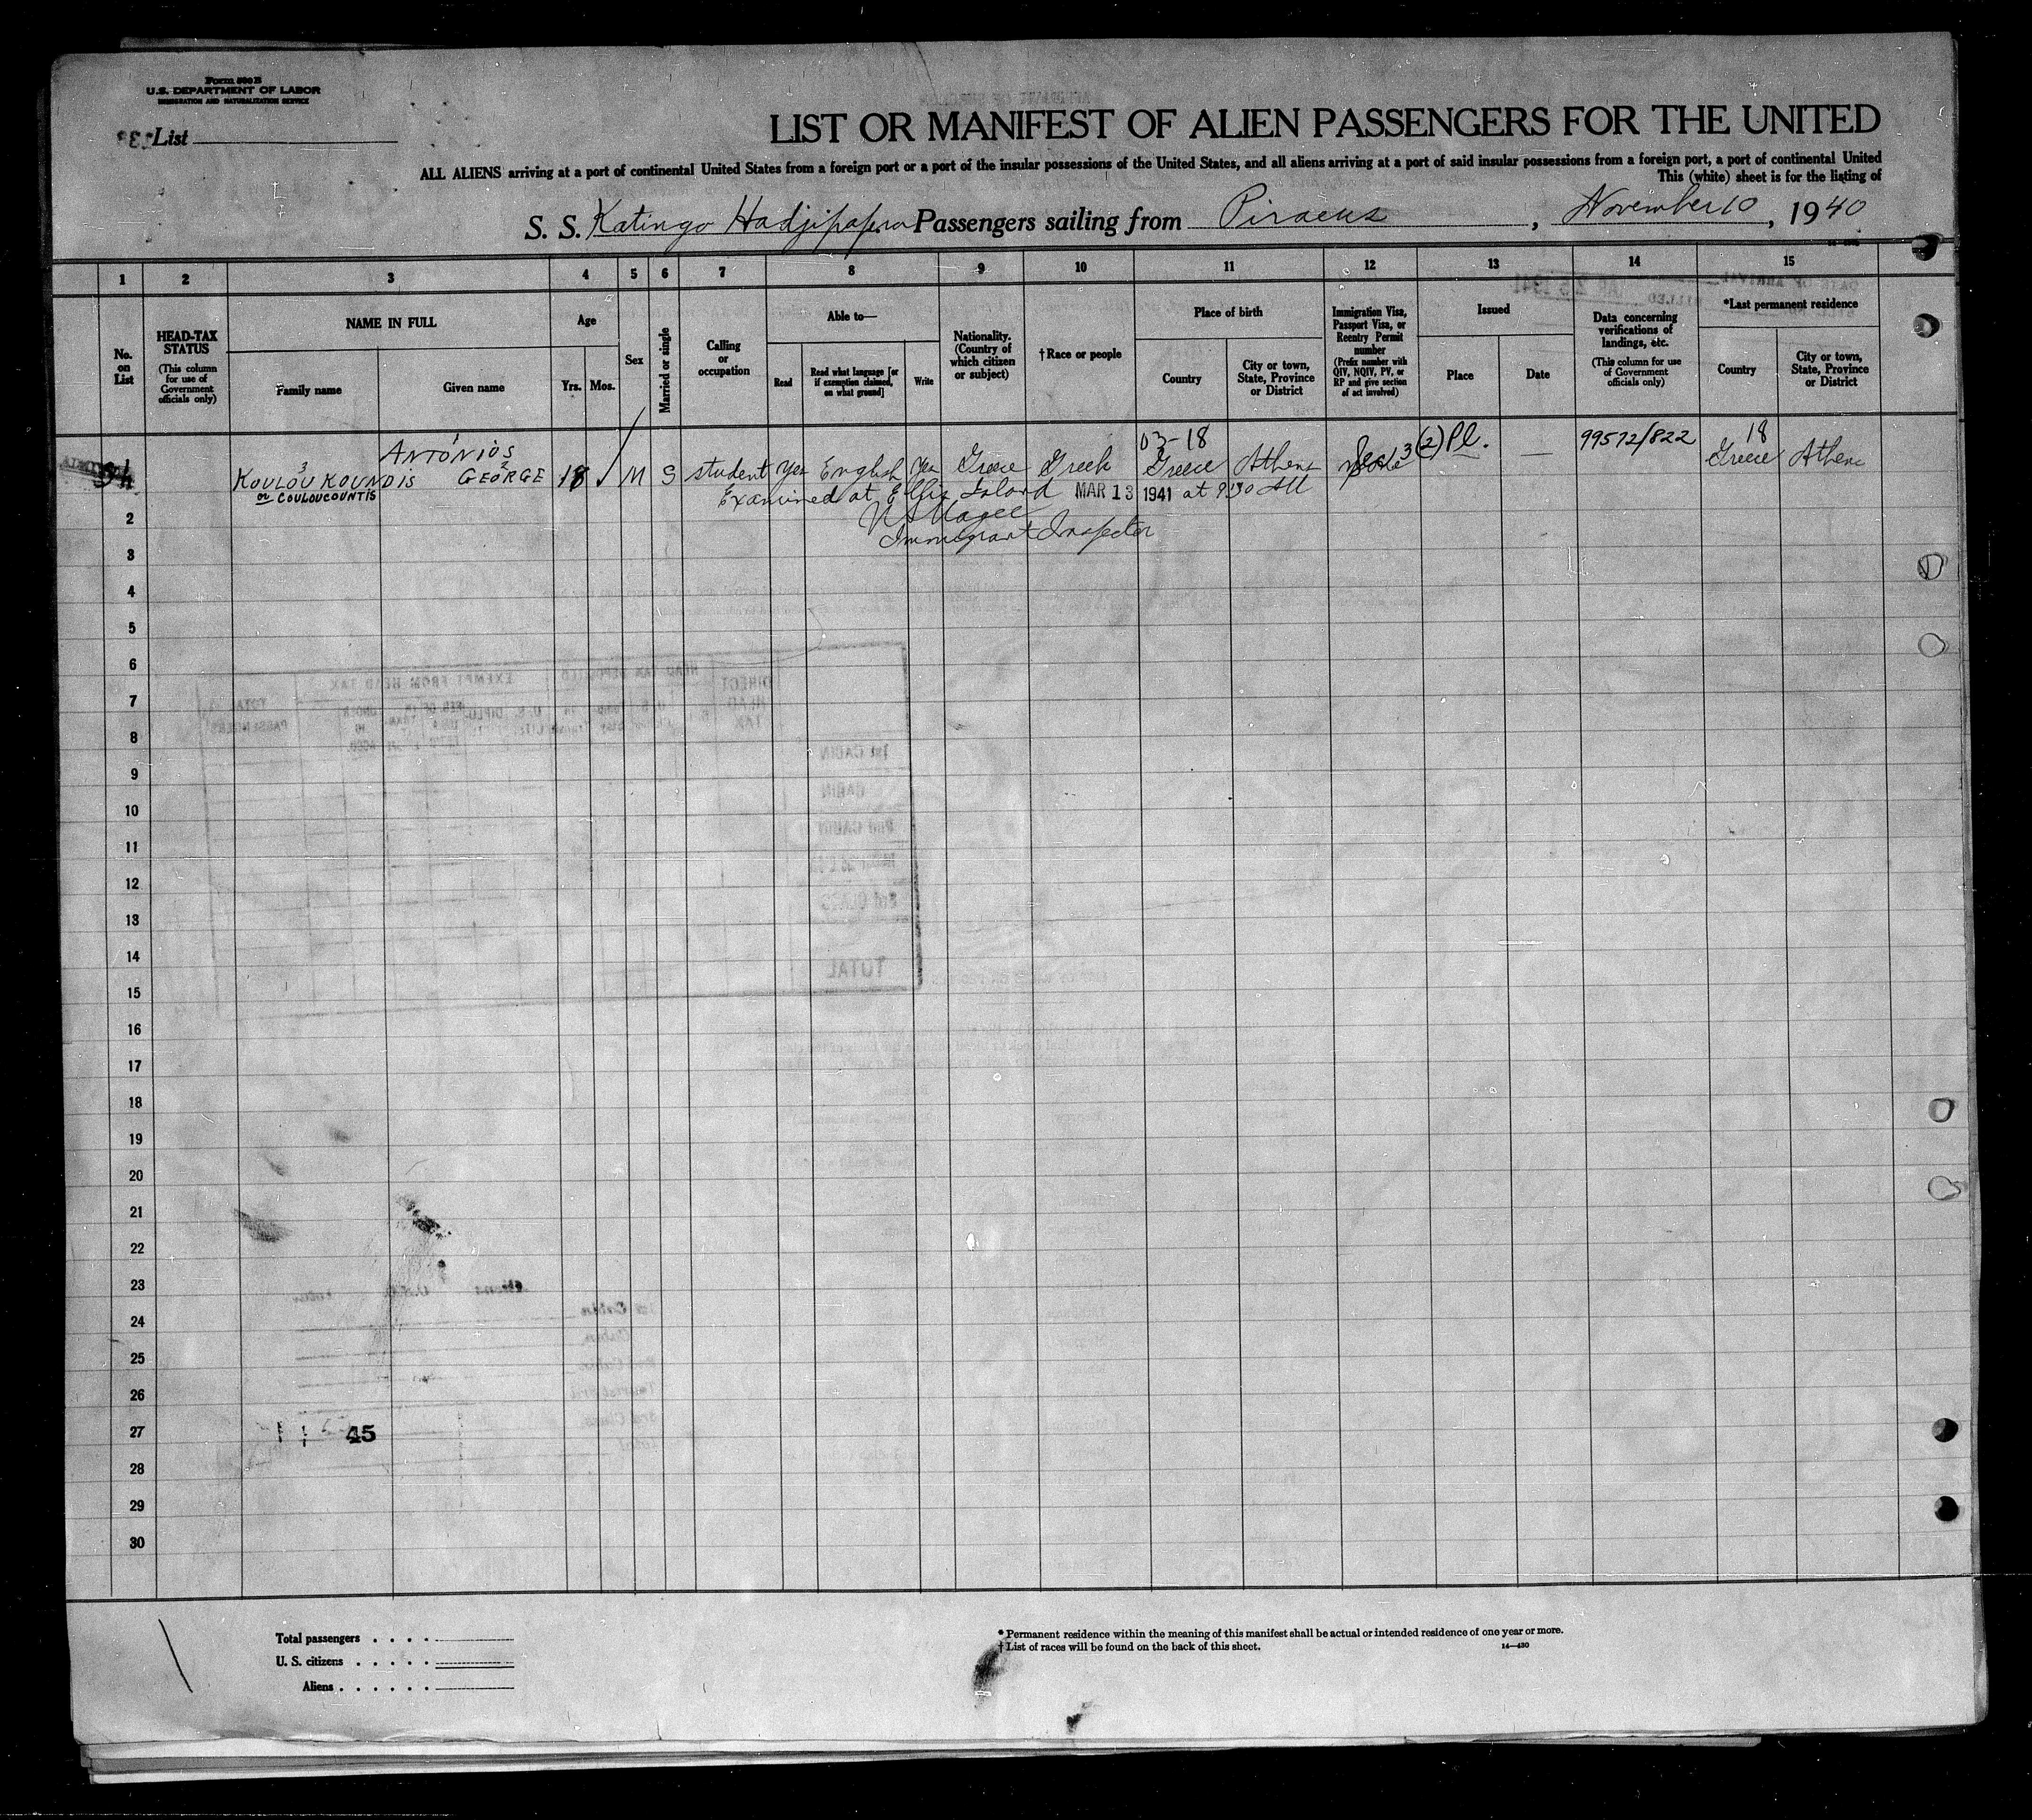 Form 500 B
U.S. DEPARTMENT OF LABOR
IMMIGRATION AND NATURALIZATION SERVICE
List
LIST OR MANIFEST OF ALIEN PASSENGERS FOR THE UNITED
ALL ALIENS arriving at a port of continental United States from a foreign port or a port of the insular possessions of the United States, and all aliens arriving at a port of said insular possessions from a foreign port, a port of continental United
This (white) sheet is for the listing of
S. S. Katingo Hadjipatera Passengers sailing from Piraeus, November 10, 1940
1 2 3 4 5 6 7 8 9 10 11 12 13 14 15
No. on List
HEAD-TAX STATUS
(This column for use of Government officials only)
NAME IN FULL
Family name
Given name
Age
Yrs. Mos.
Sex
Married or single
Calling or occupation
Able to—
Read
Read what language [or if exemption claimed, on what ground]
Write
Nationality. (Country of which citizen or subject)
†Race or people
Place of birth
Country
City or town, State, Province or District
Immigration Visa, Passport Visa, or Reentry Permit number
(Prefix number with QIV, NQIV, PV, or RP and give section of act involved)
Issued
Place
Date
Data concerning verifications of landings, etc.
(This column for use of Government officials only)
*Last permanent residence
Country
City or town, State, Province or District
1 03-18 99572/822 18
ANTONIOS
3 2
KOULOUKOUNDIS GEORGE 18 ✓ M S student yes English yes Greece Greek Greece Athens 3(2) Pl. — Greece Athens
or COULOUCOUNTIS
Examined at Ellis Island MAR 13 1941 at 9:30 AM
Immigrant Inspector
2
3
4
5
6
7
8
9
10
11
12
13
14
15
16
17
18
19
20
21
22
23
24
25
26
27 45
28
29
30
Total passengers . . . .
U. S. citizens . . . . .
Aliens . . . . . .
* Permanent residence within the meaning of this manifest shall be actual or intended residence of one year or more.
† List of races will be found on the back of this sheet.
14—430